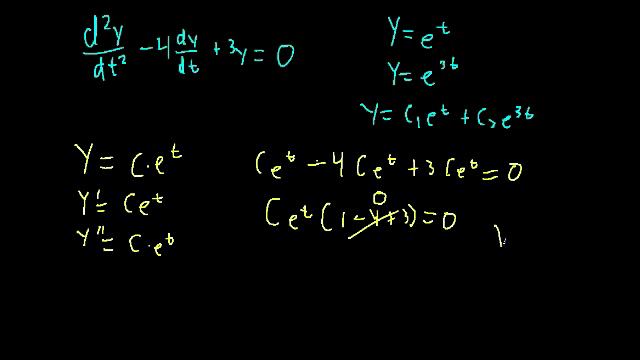 d²y/dt² - 4 dy/dt + 3y = 0
y = e^t
y = e^3t
y = c₁e^t + c₂e^3t
y = c·e^t
y' = ce^t
y'' = c·e^t
ce^t - 4ce^t + 3ce^t = 0
0
ce^t(1-4+3) = 0